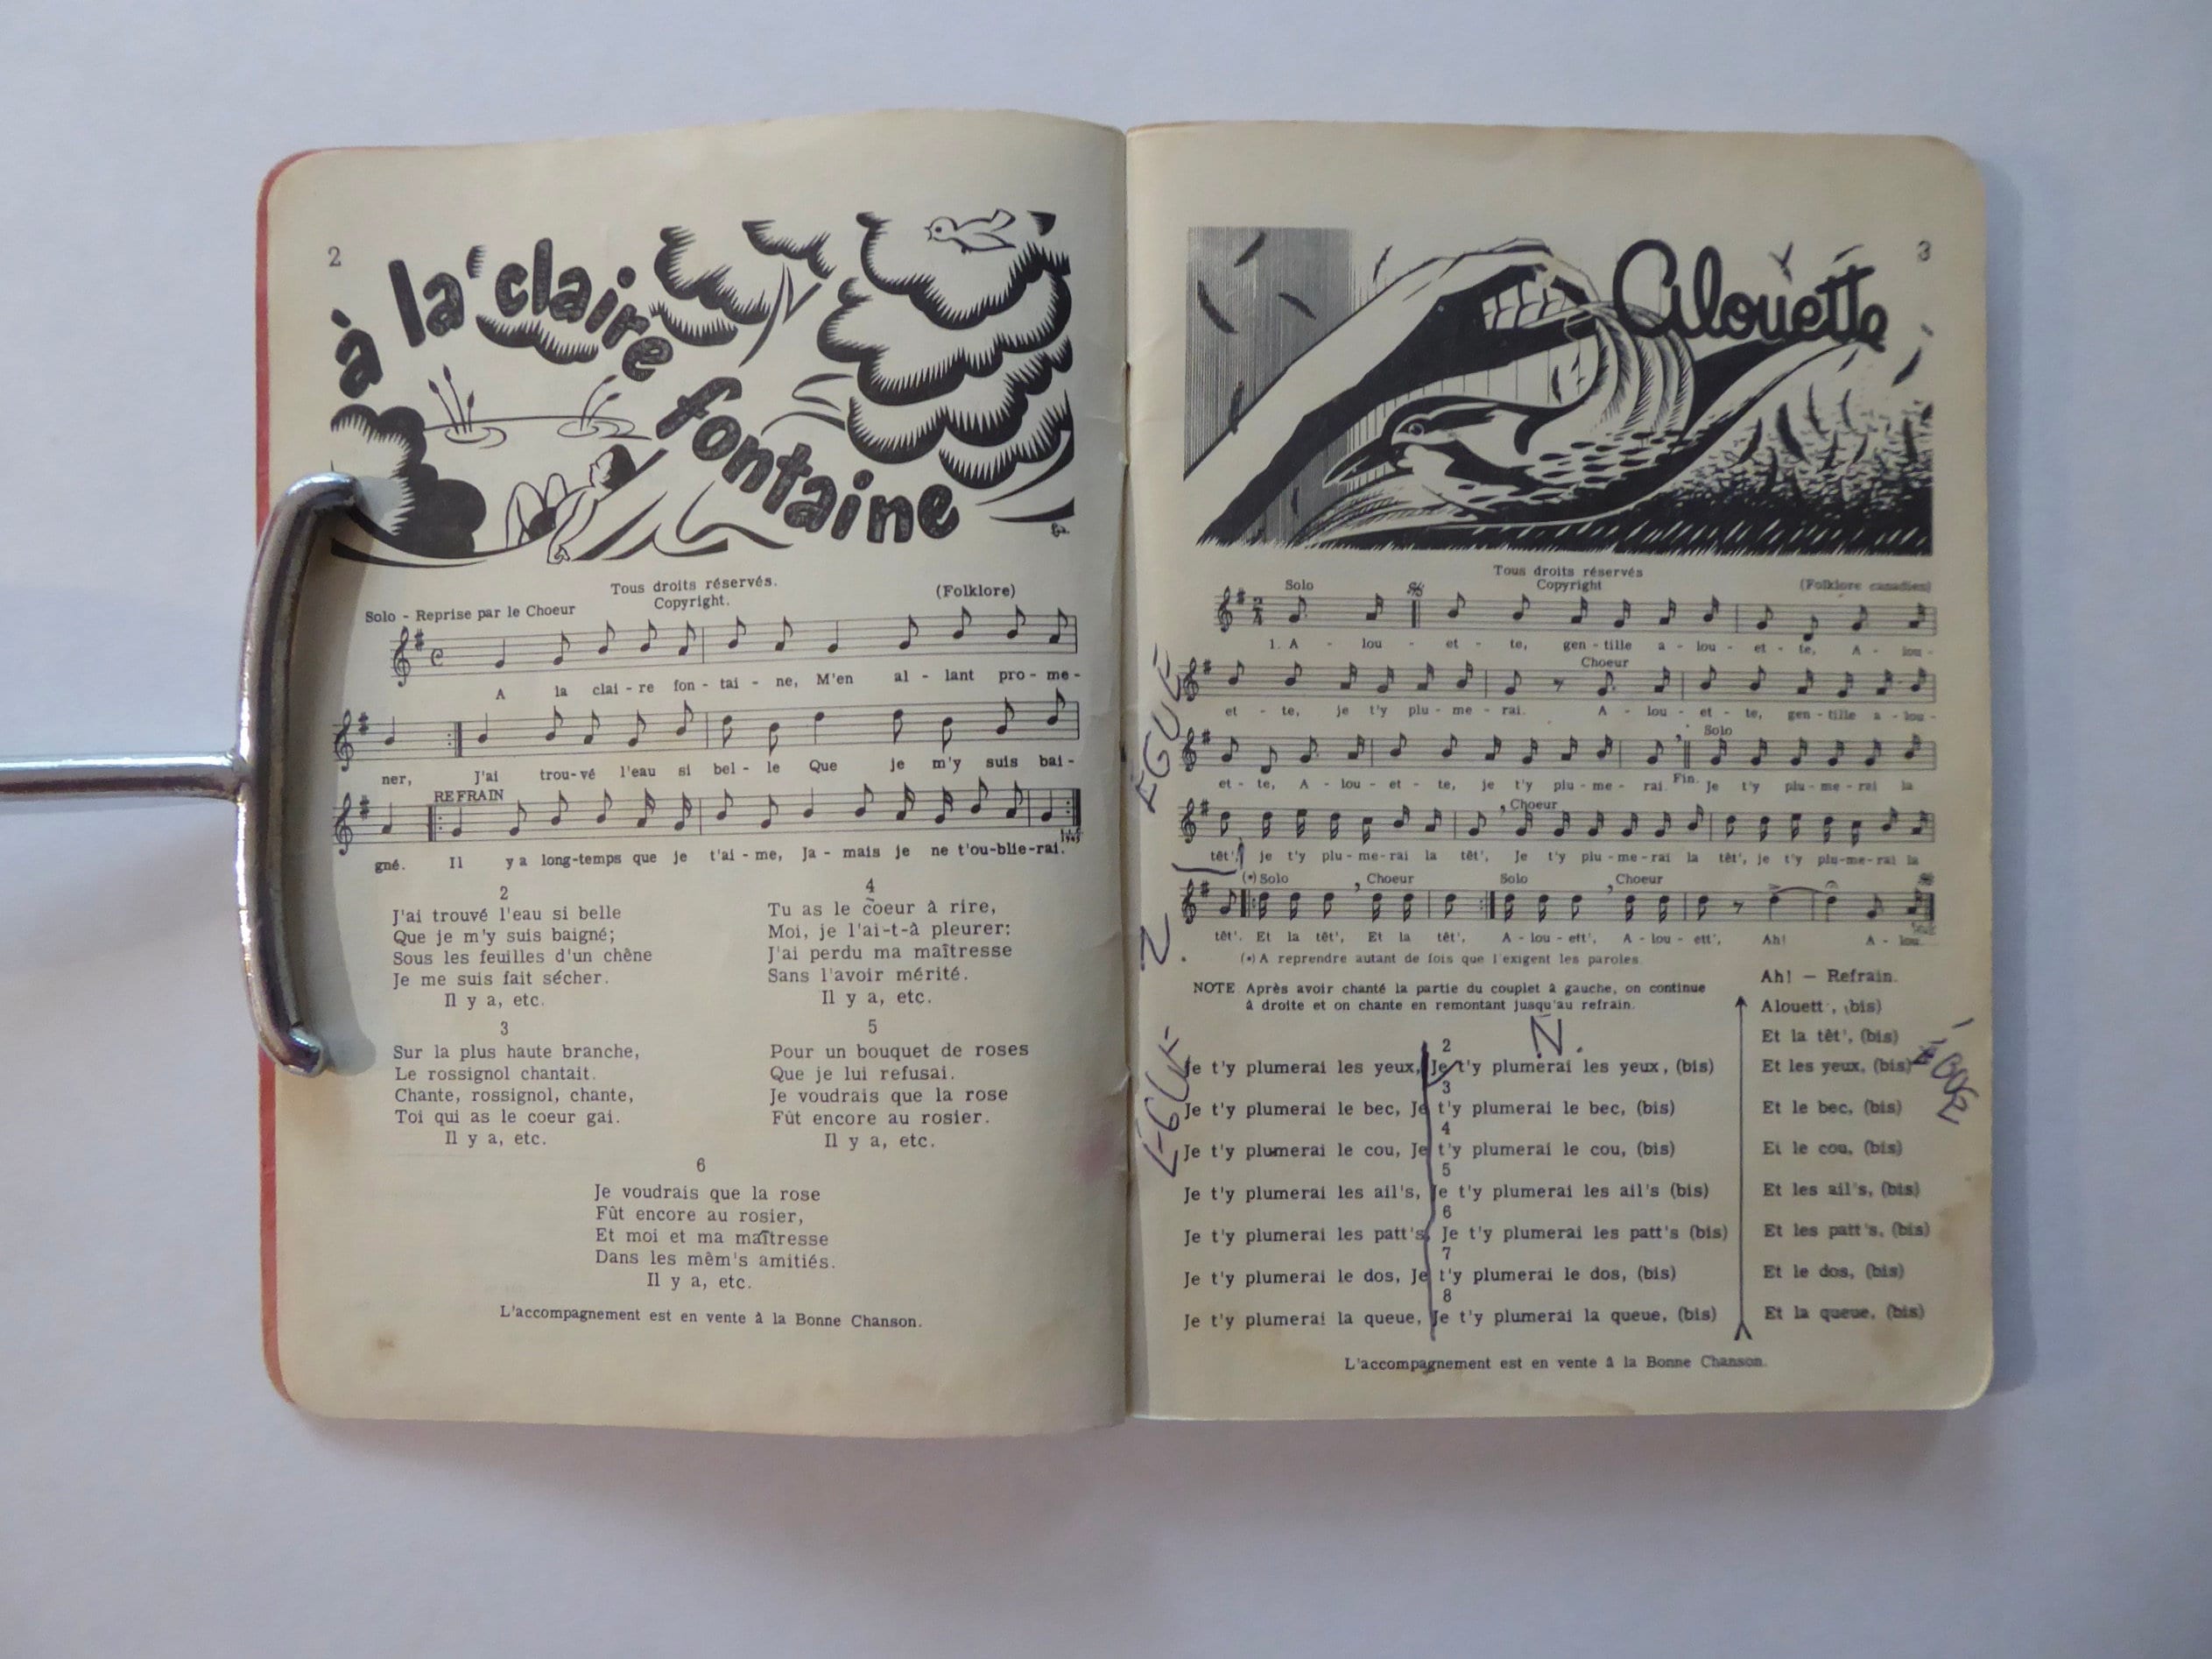 2
à la claire fontaine
Tous droits réservés.
Copyright.
(Folklore)
Solo - Reprise par le Choeur
A la clai - re fon - tai - ne, M'en al - lant pro - me -
ner, J'ai trou - vé l'eau si bel - le Que je m'y suis bai -
REFRAIN
gné. Il y a long-temps que je t'ai - me, Ja - mais je ne t'ou-blie-rai.
2
J'ai trouvé l'eau si belle
Que je m'y suis baigné;
Sous les feuilles d'un chêne
Je me suis fait sécher.
Il y a, etc.
3
Sur la plus haute branche,
Le rossignol chantait.
Chante, rossignol, chante,
Toi qui as le coeur gai.
Il y a, etc.
4
Tu as le coeur à rire,
Moi, je l'ai-t-à pleurer:
J'ai perdu ma maîtresse
Sans l'avoir mérité.
Il y a, etc.
5
Pour un bouquet de roses
Que je lui refusai.
Je voudrais que la rose
Fût encore au rosier.
Il y a, etc.
6
Je voudrais que la rose
Fût encore au rosier,
Et moi et ma maîtresse
Dans les mêm's amitiés.
Il y a, etc.
L'accompagnement est en vente à la Bonne Chanson.
3
Alouette
Tous droits réservés
Copyright
(Folklore canadien)
Solo
1. A - lou - et - te, gen - tille a - lou - et - te, A - lou -
Choeur
et - te, je t'y plu - me - rai. A - lou - et - te, gen - tille a - lou -
Solo
et - te, A - lou - et - te, je t'y plu - me - rai. Fin. Je t'y plu - me - rai la
Choeur
têt', je t'y plu - me - rai la têt', Je t'y plu - me - rai la têt', je t'y plu-me-rai la
(*) Solo Choeur Solo Choeur
têt'. Et la têt', Et la têt', A - lou - ett', A - lou - ett', Ah! A - lou
(*) A reprendre autant de fois que l'exigent les paroles.
NOTE. Après avoir chanté la partie du couplet à gauche, on continue
à droite et on chante en remontant jusqu'au refrain.
N.
2
Je t'y plumerai les yeux, Je t'y plumerai les yeux, (bis)
3
Je t'y plumerai le bec, Je t'y plumerai le bec, (bis)
4
Je t'y plumerai le cou, Je t'y plumerai le cou, (bis)
5
Je t'y plumerai les ail's, Je t'y plumerai les ail's (bis)
6
Je t'y plumerai les patt's, Je t'y plumerai les patt's (bis)
7
Je t'y plumerai le dos, Je t'y plumerai le dos, (bis)
8
Je t'y plumerai la queue, Je t'y plumerai la queue, (bis)
Ah! — Refrain.
Alouett', (bis)
Et la têt', (bis)
Et les yeux, (bis)
Et le bec, (bis)
Et le cou, (bis)
Et les ail's, (bis)
Et les patt's, (bis)
Et le dos, (bis)
Et la queue, (bis)
L'accompagnement est en vente à la Bonne Chanson.